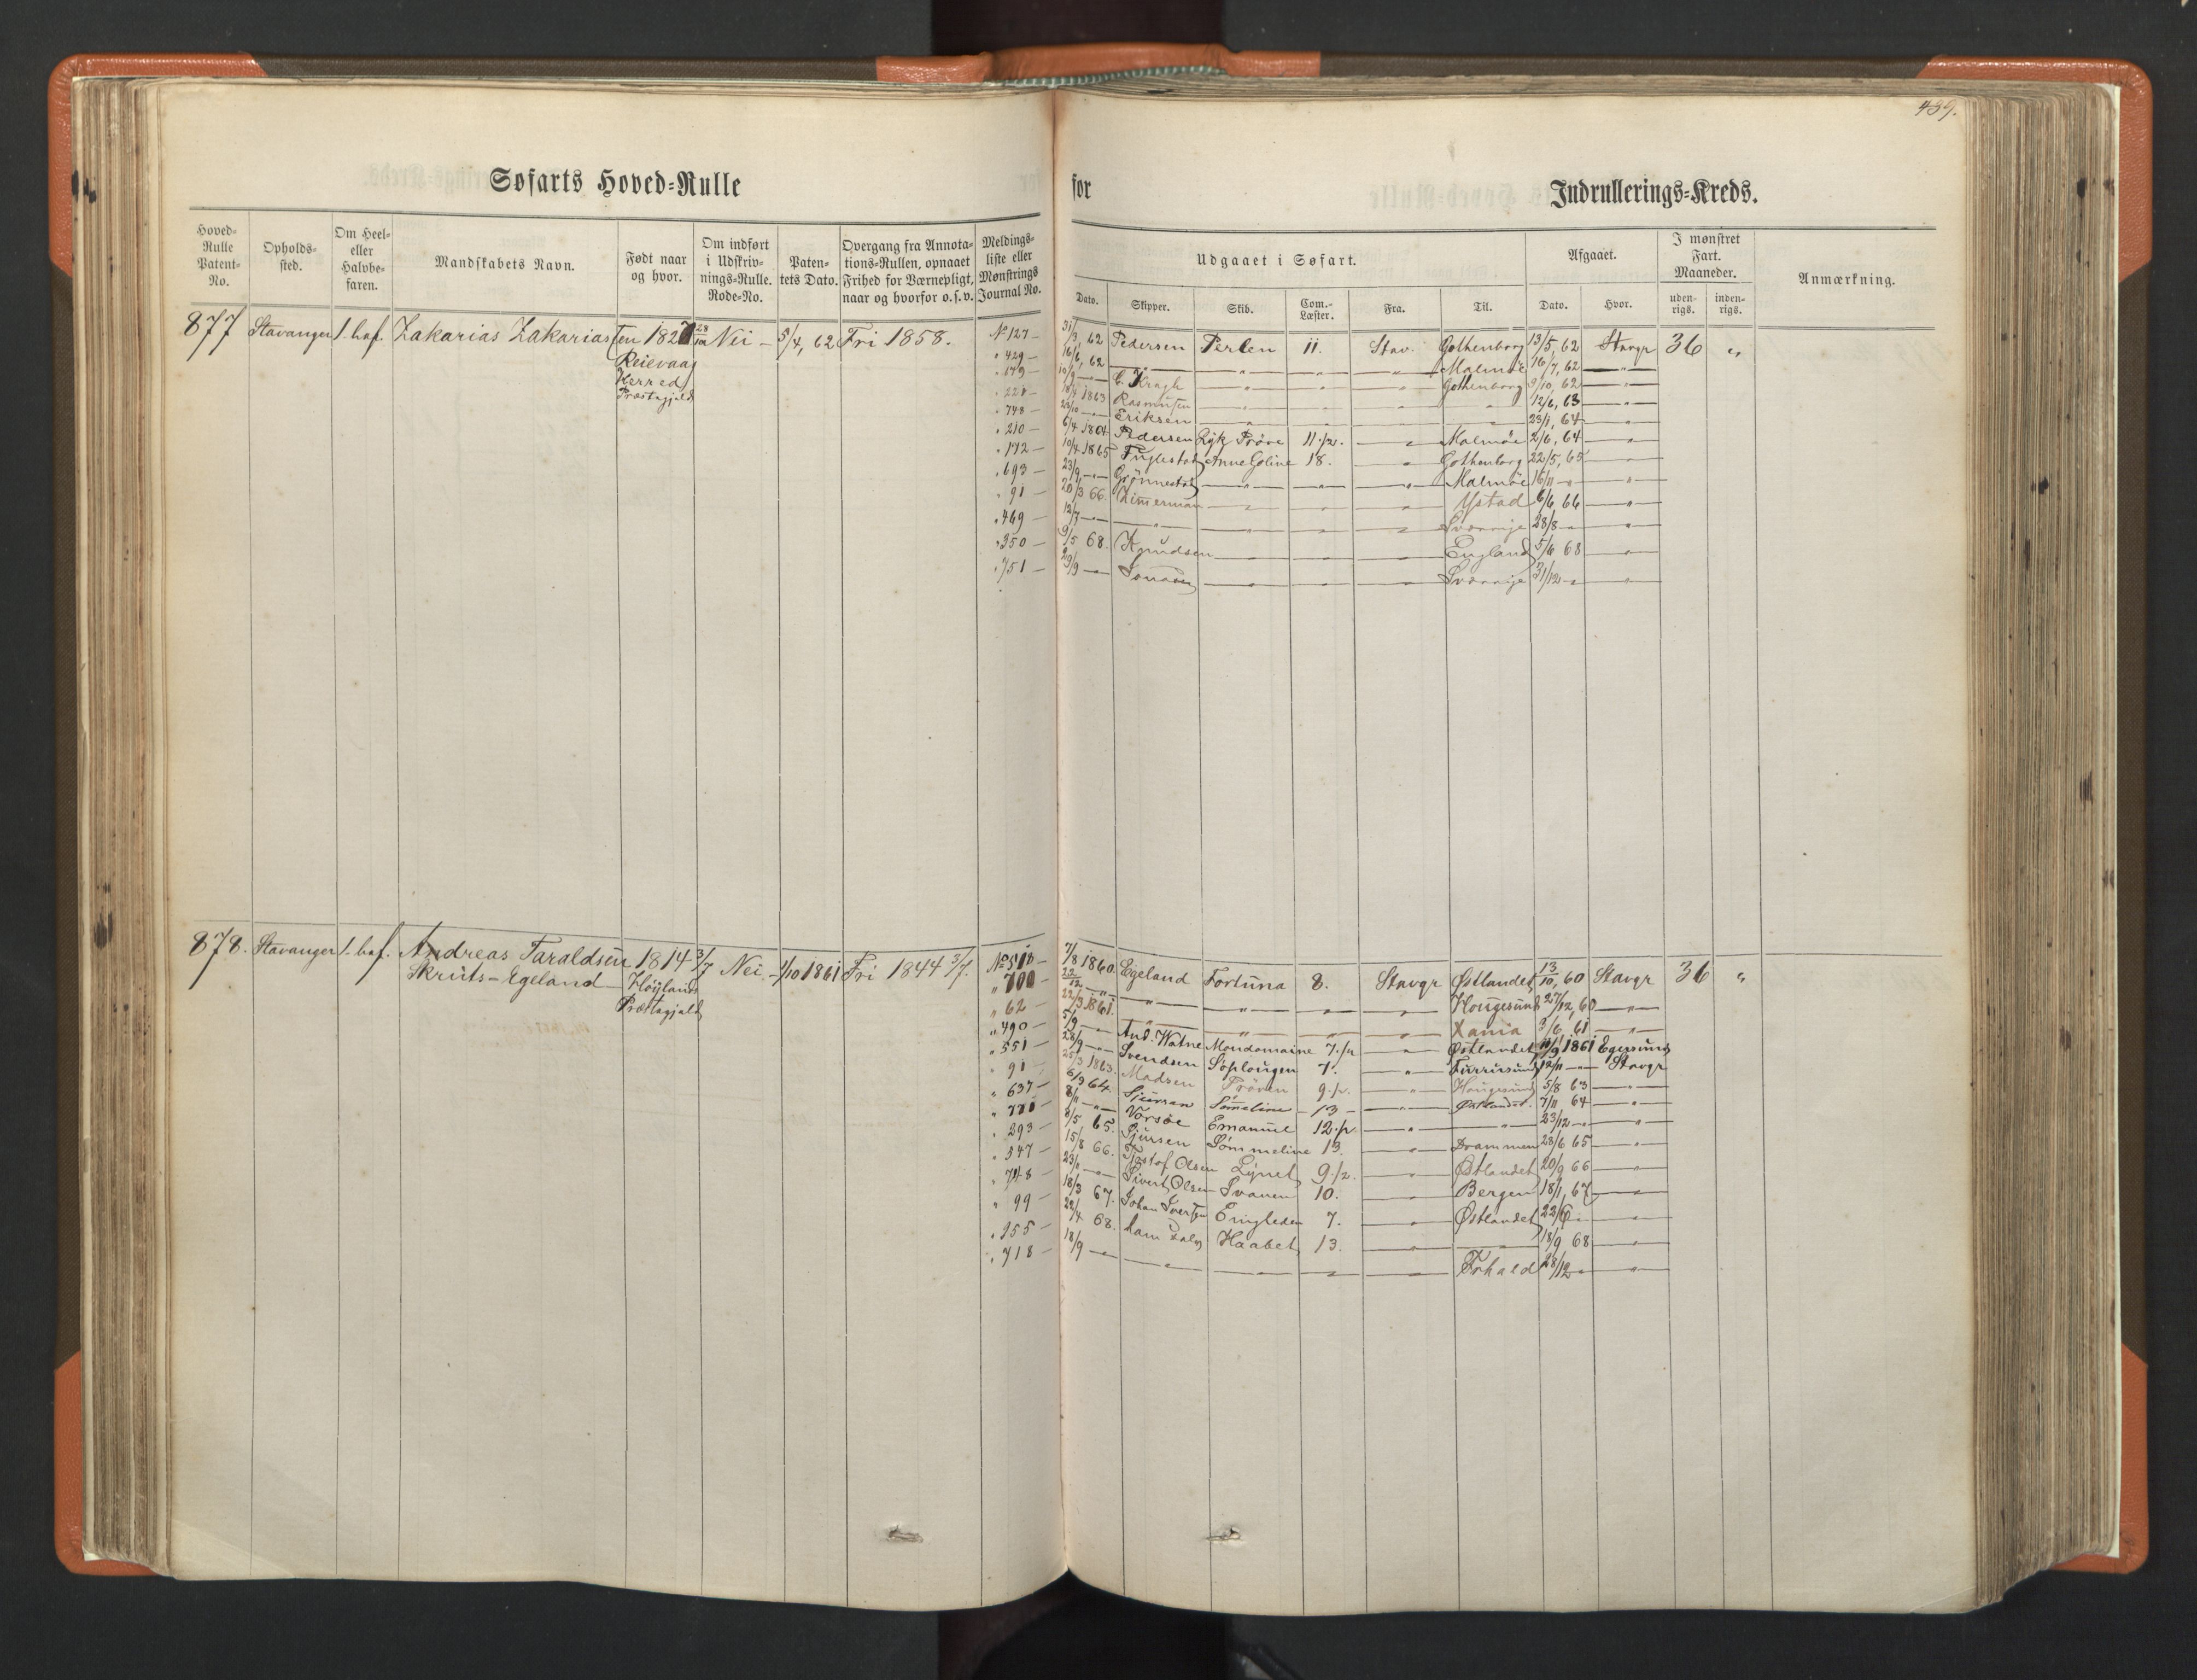 439.
Søfarts Hoved-Rulle for Indrullerings-Kreds.
Hoved-Rulle Patent-No. Opholds-sted. Om Heel- eller Halvbe-faren. Mandskabets Navn. Født naar og hvor. Om indført i Udskriv-nings-Rulle. Rode-No. Paten-tets Dato. Overgang fra Annota-tions-Rullen, opnaaet Frihed for Værnepligt, naar og hvorfor o. s. v. Meldings-liste eller Mønstrings Journal No.
Udgaaet i Søfart. Afgaaet. I mønstret Fart. Maaneder. Anmærkning.
Dato. Skipper. Skib. Com.-Læster. Fra. Til. Dato. Hvor. uden-rigs. inden-rigs.
877 Stavanger 1. haf. Zakarias Zakariassen 1827 28/10 Nei – 5/4, 62 Fri 1858. № 127 – 31/3, 62 Pedersen Perlen 11. Stav. Gothenborg 13/5, 62 Stavgr 36 "
Reievaag " 429 – 16/6, 62 — " — " — " — " — Malmöe 16/7, 62 — " —
Herred " 179 – 10/9 — C. Kragh — " — " — " — Gothenborg 9/10, 62 — " —
Præstegjeld " 221 – 18/4 1863 Rasmussen — " — " — 12/6, 63 — " —
" 748 – 23/10 — Eriksen — " — " — 23/1, 64 — " —
" 210 – 6/4 1864 Pedersen Lyk Pröve 11 1/2. — " — Malmöe 2/6, 64 — " —
" 172 – 10/4 1865 Fuglestad Anne Goline 18. — " — Gothenborg 22/5, 65 — " —
" 693 – 23/9 — Grönnestad — " — " — " — Malmöe 16/11 — " —
" 91 – 20/3 66. Zimerman — " — " — " — Ystad 6/6, 66 — " —
" 469 – 12/7 — " — " — " — " — Sverrige 28/8 — " —
" 350 – 9/5 68. Knudsen — " — " — England 5/6 68 — " —
" 751 – 29/9 — — " — " — Sverrige 31/12 — " —
878. Stavanger 1. haf. Andreas Taraldsen 1814 3/7 Nei – 1/10 1861 Fri 1844 3/7. № 513 – 7/8 1860. Egeland Fortuna 8. Stavgr Östlandet 13/10, 60 Stavgr 36 "
Skruts-Egeland Höylands " 700 – 22/12 — " — " — " — Hougesund 27/12, 60 — " —
Præstegjeld " 62 – 22/3 1861. — " — " — Xania 3/6, 61 — " —
" 490 – 5/9 — And. Watne Mondomaine 7 1/2 — " — Östlandet 11/9 1861 Egersund
" 551 – 28/9 — Svendsen Söplougen 7. — " — 12/11 — Stavgr
" 91 – 25/3 1863. Madsen Pröven 9 1/2. — " — Hougesund 5/8 63 — " —
" 637 – 6/9 64. Sjursen Sömeline 13 — " — Östlandet. 7/11 64 — " —
8/11 — Vorsöe Emanuel 12 1/2. — " — " — 23/12 — " —
" 293 – 8/5 65. Sjursen Sömmeline 13. — " — Drammen 28/6 65 — " —
" 547 – 15/8 66. Tostof Olsen Lynet 9 1/2. — " — Östlandet 20/9 66 — " —
" 748 – 23/11 — Sivert Olsen Svanen 10. — " — Bergen 18/1, 67 — " —
" 99 – 18/3 67. Johan Iversen 7. — " — Östlandet 22/6 — " —
" 155 – 22/4 68. Haabet 13. — " — 18/9 68 — " —
" 718 – 18/9 — " — " — " — " — Frhald 28/12 — " —